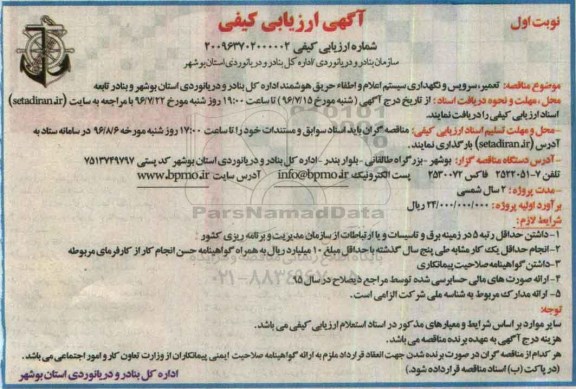 نوبت اول
آگهی ارزیابی کیفی
شماره ارزیابی کیفی ۲۰۰۹۶۳۷۰۲۰۰۰۰۰۲
سازمان بنادر و دریانوردی/اداره کل بنادر و دریانوردی استان بوشهر
موضوع مناقصه: تعمیر، سرویس و نگهداری سیستم اعلام و اطفاء حریق هوشمند اداره کل بنادر و دریانوردی استان بوشهر و بنادر تابعه
محل، مهلت و نحوه دریافت اسناد: از تاریخ درج آگهی (شنبه مورخ ۹۶/۷/۱۵) تا ساعت ۱۹:۰۰ روز شنبه مورخ ۹۶/۷/۲۲ با مراجعه به سایت (setadiran.ir)
اسناد ارزیابی کیفی را دریافت نمایند.
- محل و مهلت تسلیم اسناد ارزیابی کیفی: مناقصه گران باید اسناد سوابق و مستندات خود را تا ساعت ۱۷:۰۰ روز شنبه مورخه ۹۶/۸/۶ در سامانه ستاد به
آدرس (setadiran.ir) بارگذاری نمایند.
- آدرس دستگاه مناقصه گزار: بوشهر - بزرگراه طالقانی - بلوار بندر - اداره کل بنادر و دریانوردی استان بوشهر کد پستی ۷۵۱۳۷۴۹۷۹۷
تلفن ۷-۲۵۲۲۰۵۱ فاکس ۲۵۳۰۰۷۲ پست الکترونیک info@bpmo.ir آدرس سایت www.bpmo.ir
- مدت پروژه: ۲ سال شمسی
برآورد اولیه پروژه: ۲۴/۰۰۰/۰۰۰/۰۰۰ ریال
شرایط لازم:
۱- داشتن حداقل رتبه ۵ در زمینه برق و تاسیسات و یا ارتباطات از سازمان مدیریت و برنامه ریزی کشور
۲- انجام حداقل یک کار مشابه طی پنج سال گذشته با حداقل مبلغ ۱۰ میلیارد ریال به همراه گواهینامه حسن انجام کار از کارفرمای مربوطه
۳- داشتن گواهینامه صلاحیت پیمانکاری
۴- ارائه صورت های مالی حسابرسی شده توسط مراجع ذیصلاح در سال ۹۵
۵- ارائه مدارک مربوط به شناسه ملی شرکت الزامی است.
توجه:
سایر موارد بر اساس شرایط و معیارهای مذکور در اسناد استعلام ارزیابی کیفی می باشد.
هزینه درج آگهی به عهده برنده مناقصه می باشد.
هر کدام از مناقصه گران در صورت برنده شدن جهت انعقاد قرارداد ملزم به ارائه گواهینامه صلاحیت ایمنی پیمانکاران از وزارت تعاون کار و امور اجتماعی می باشد.
(در پاکت (ب) اسناد مناقصه قرار داده شود.)
اداره کل بنادر و دریانوردی استان بوشهر
ParsNamadData